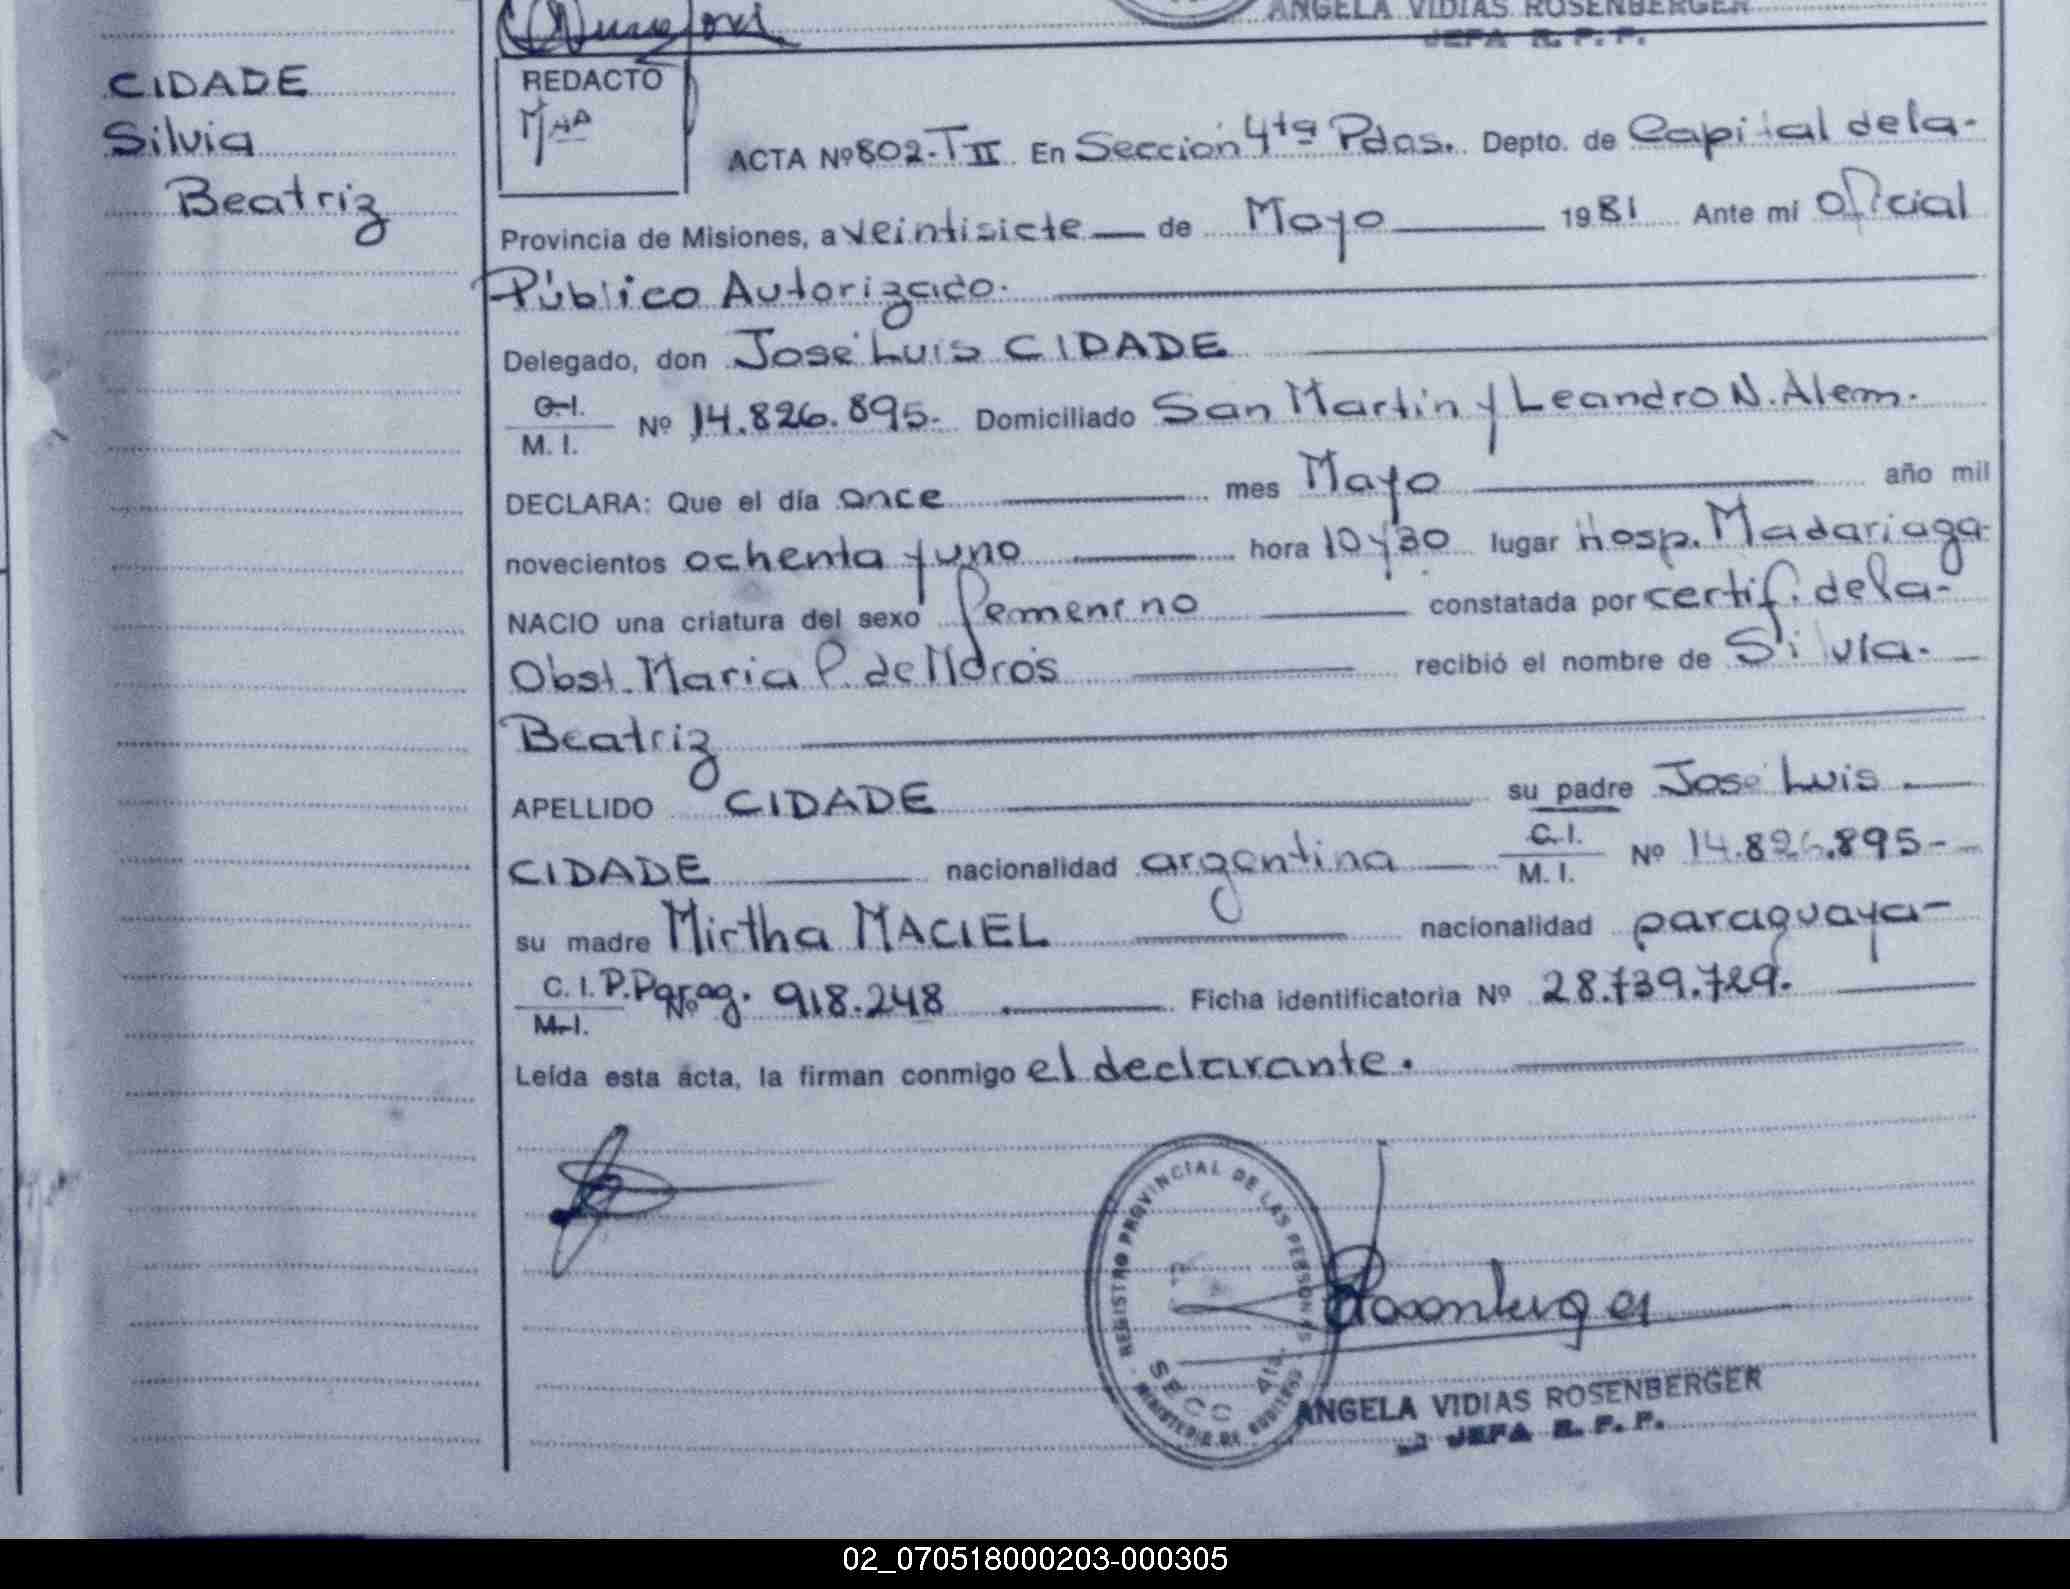 ANGELA VIDIAS ROSENBERGER
JEFA R. P. P.
CIDADE
Silvia
Beatriz
REDACTO
ACTA Nº 802-T II En Sección 4ta Pdas. Depto. de Capital de la-
Provincia de Misiones, a veintisiete de Mayo 1981 Ante mi Oficial
Público Autorizado.
Delegado, don José Luis CIDADE
C.I.
M. I. Nº 14.826.895- Domiciliado San Martín y Leandro N. Alem.
DECLARA: Que el día once mes Mayo año mil
novecientos ochenta y uno hora 10 y 30 lugar Hosp. Madariaga-
NACIO una criatura del sexo femenino constatada por certif. de la-
Obst. Maria P. de Moros recibió el nombre de Silvia-
Beatriz
APELLIDO CIDADE su padre José Luis
CIDADE nacionalidad argentina C.I. M. I. Nº 14.826.895-
su madre Mirtha MACIEL nacionalidad paraguaya-
C. I. P. Parag. Nº 918.248 Ficha identificatoria Nº 28.739.729.
M.I.
Leída esta acta, la firman conmigo el declarante.
REGISTRO PROVINCIAL DE LAS PERSONAS
SECC 4ta.
MINISTERIO DE GOBIERNO
Rosenberger
ANGELA VIDIAS ROSENBERGER
JEFA R. P. P.
02_070518000203-000305